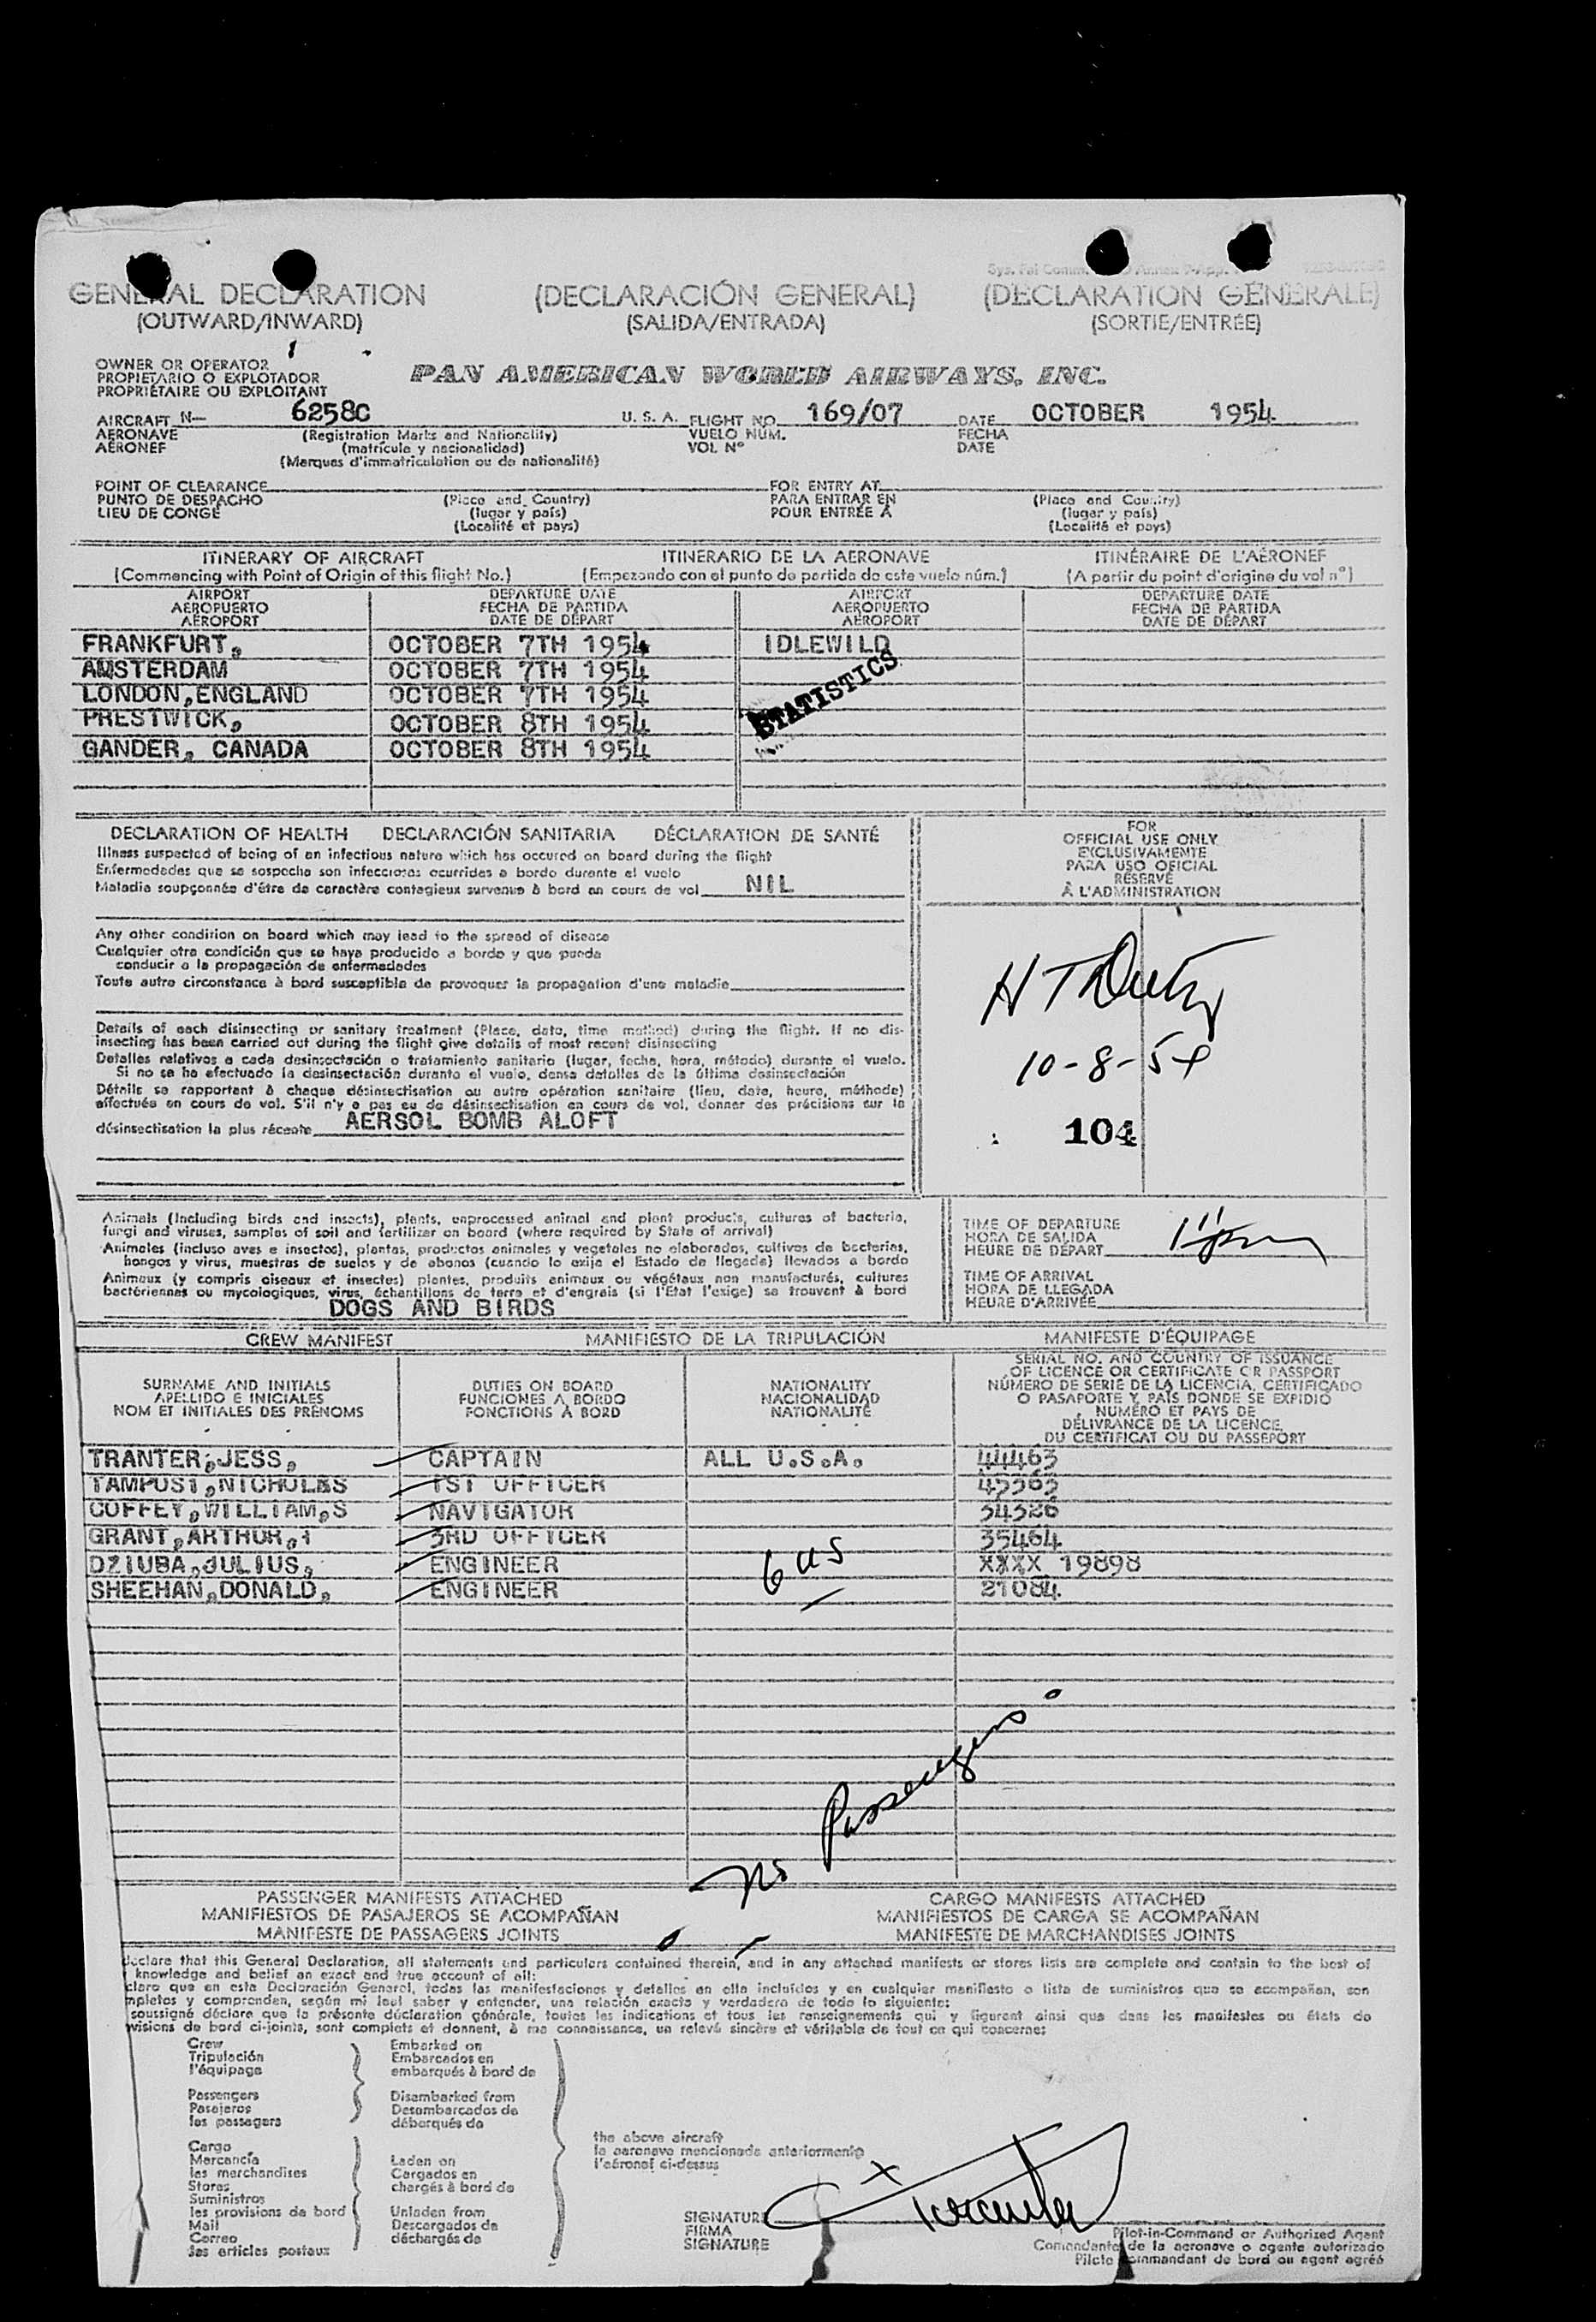 GENERAL DECLARATION (DECLARACIÓN GENERAL) (DÉCLARATION GÉNÉRALE)
(OUTWARD/INWARD) (SALIDA/ENTRADA) (SORTIE/ENTRÉE)
OWNER OR OPERATOR
PROPIETARIO O EXPLOTADOR
PROPRIÉTAIRE OU EXPLOITANT
PAN AMERICAN WORLD AIRWAYS, INC.
AIRCRAFT N— 6258C U. S. A. FLIGHT NO. 169/07 DATE OCTOBER 1954
AERONAVE (Registration Marks and Nationality) VUELO NÚM. FECHA
AÉRONEF (matrícula y nacionalidad) VOL Nº DATE
(Marques d'immatriculation ou de nationalité)
POINT OF CLEARANCE FOR ENTRY AT
PUNTO DE DESPACHO (Place and Country) PARA ENTRAR EN (Place and Country)
LIEU DE CONGÉ (lugar y país) POUR ENTRÉE À (lugar y país)
(Localité et pays) (Localité et pays)
ITINERARY OF AIRCRAFT ITINERARIO DE LA AERONAVE ITINÉRAIRE DE L'AÉRONEF
(Commencing with Point of Origin of this flight No.) (Empezando con el punto de partida de este vuelo núm.) (A partir du point d'origine du vol nº)
AIRPORT DEPARTURE DATE AIRPORT DEPARTURE DATE
AEROPUERTO FECHA DE PARTIDA AEROPUERTO FECHA DE PARTIDA
AÉROPORT DATE DE DÉPART AÉROPORT DATE DE DÉPART
FRANKFURT, OCTOBER 7TH 1954 IDLEWILD
AMSTERDAM OCTOBER 7TH 1954
LONDON,ENGLAND OCTOBER 7TH 1954
PRESTWICK, OCTOBER 8TH 1954
GANDER, CANADA OCTOBER 8TH 1954
STATISTICS
DECLARATION OF HEALTH DECLARACIÓN SANITARIA DÉCLARATION DE SANTÉ
Illness suspected of being of an infectious nature which has occured on board during the flight
Enfermedades que se sospecha son infecciosas ocurridas a bordo durante el vuelo
Maladie soupçonnée d'être de caractère contagieux survenue à bord en cours de vol NIL
Any other condition on board which may lead to the spread of disease
Cualquier otra condición que se haya producido a bordo y que pueda
conducir a la propagación de enfermedades
Toute autre circonstance à bord susceptible de provoquer la propagation d'une maladie
Details of each disinsecting or sanitary treatment (Place, date, time method) during the flight. If no dis-
insecting has been carried out during the flight give details of most recent disinsecting
Detalles relativos a cada desinsectación o tratamiento sanitario (lugar, fecha, hora, método) durante el vuelo.
Si no se ha efectuado la desinsectación durante el vuelo, dense detalles de la última desinsectación
Détails se rapportant à chaque désinsectisation ou autre opération sanitaire (lieu, date, heure, méthode)
effectuée en cours de vol. S'il n'y a pas eu de désinsectisation en cours de vol, donner des précisions sur la
désinsectisation la plus récente AERSOL BOMB ALOFT
FOR
OFFICIAL USE ONLY
EXCLUSIVAMENTE
PARA USO OFICIAL
RÉSERVÉ
À L'ADMINISTRATION
10-8-54
104
Animals (Including birds and insects), plants, unprocessed animal and plant products, cultures of bacteria,
fungi and viruses, samples of soil and fertilizer on board (where required by State of arrival)
Animales (incluso aves e insectos), plantas, productos animales y vegetales no elaborados, cultivos de bacterias,
hongos y virus, muestras de suelos y de abonos (cuando lo exija el Estado de llegada) llevados a bordo
Animaux (y compris oiseaux et insectes) plantes, produits animaux ou végétaux non manufacturés, cultures
bactériennes ou mycologiques, virus, échantillons de terre et d'engrais (si l'État l'exige) se trouvant à bord
DOGS AND BIRDS
TIME OF DEPARTURE
HORA DE SALIDA
HEURE DE DÉPART
TIME OF ARRIVAL
HORA DE LLEGADA
HEURE D'ARRIVÉE
CREW MANIFEST MANIFIESTO DE LA TRIPULACIÓN MANIFESTE D'ÉQUIPAGE
SURNAME AND INITIALS
APELLIDO E INICIALES
NOM ET INITIALES DES PRÉNOMS
DUTIES ON BOARD
FUNCIONES A BORDO
FONCTIONS À BORD
NATIONALITY
NACIONALIDAD
NATIONALITÉ
SERIAL NO. AND COUNTRY OF ISSUANCE
OF LICENCE OR CERTIFICATE OR PASSPORT
NÚMERO DE SERIE DE LA LICENCIA, CERTIFICADO
O PASAPORTE Y PAÍS DONDE SE EXPIDIÓ
NUMÉRO ET PAYS DE
DÉLIVRANCE DE LA LICENCE,
DU CERTIFICAT OU DU PASSEPORT
TRANTER,JESS, CAPTAIN ALL U.S.A. 44463
TAMPOSI,NICHOLAS 1ST OFFICER
COFFEY,WILLIAM,S NAVIGATOR 34328
GRANT,ARTHUR, 3RD OFFICER 35464
DZIUBA,JULIUS, ENGINEER XXXX 19898
SHEEHAN,DONALD, ENGINEER 21084
6 US
No Passengers
PASSENGER MANIFESTS ATTACHED CARGO MANIFESTS ATTACHED
MANIFIESTOS DE PASAJEROS SE ACOMPAÑAN MANIFIESTOS DE CARGA SE ACOMPAÑAN
MANIFESTE DE PASSAGERS JOINTS MANIFESTE DE MARCHANDISES JOINTS
declare that this General Declaration, all statements and particulars contained therein, and in any attached manifests or stores lists are complete and contain to the best of
knowledge and belief an exact and true account of all:
claro que en esta Declaración General, todas las manifestaciones y detalles en ella incluídos y en cualquier manifiesto o lista de suministros que se acompañan, son
mpletos y comprenden, según mi leal saber y entender, una relación exacta y verdadera de todo lo siguiente:
soussigné déclare que la présente déclaration générale, toutes les indications et tous les renseignements qui y figurent ainsi que dans les manifestes ou états de
visions de bord ci-joints, sont complets et donnent, à ma connaissance, un relevé sincère et véritable de tout ce qui concerne:
Crew Embarked on
Tripulación Embarcados en
l'équipage embarqués à bord de
Passengers Disembarked from
Pasajeros Desembarcados de
les passagers débarqués de
the above aircraft
la aeronave mencionada anteriormente
l'aéronef ci-dessus
Cargo
Mercancía Laden on
les marchandises Cargados en
Stores chargés à bord de
Suministros
les provisions de bord Unladen from
Mail Descargados de
Correo déchargés de
les articles postaux
SIGNATURE
FIRMA
SIGNATURE
X Tranter
Pilot-in-Command or Authorized Agent
Comandante de la aeronave o agente autorizado
Pilote commandant de bord ou agent agréé